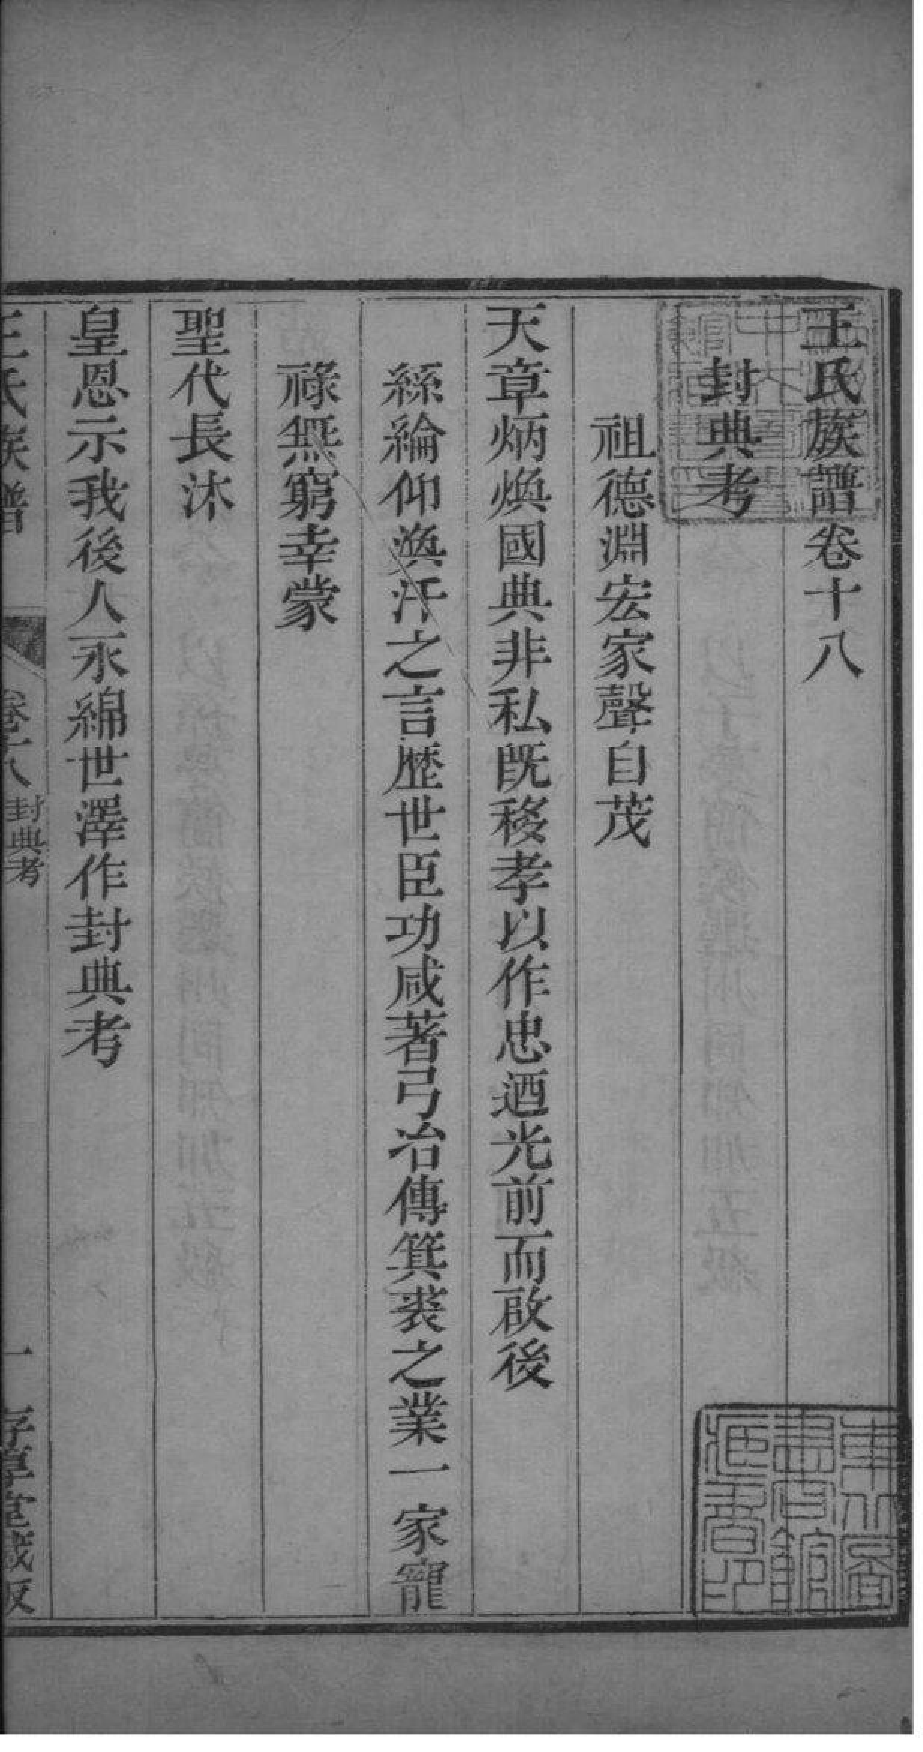 王氏族譜卷十八
封典考
祖德淵宏家聲自茂
天章炳煥國典非私既移孝以作忠迺光前而啟後
絲綸仰渙汗之言歷世臣功咸著弓冶傳箕裘之業一家寵
祿無窮幸蒙
聖代長沐
皇恩示我後人永綿世澤作封典考
王氏族譜
卷十八 封典考
一 存厚堂藏板